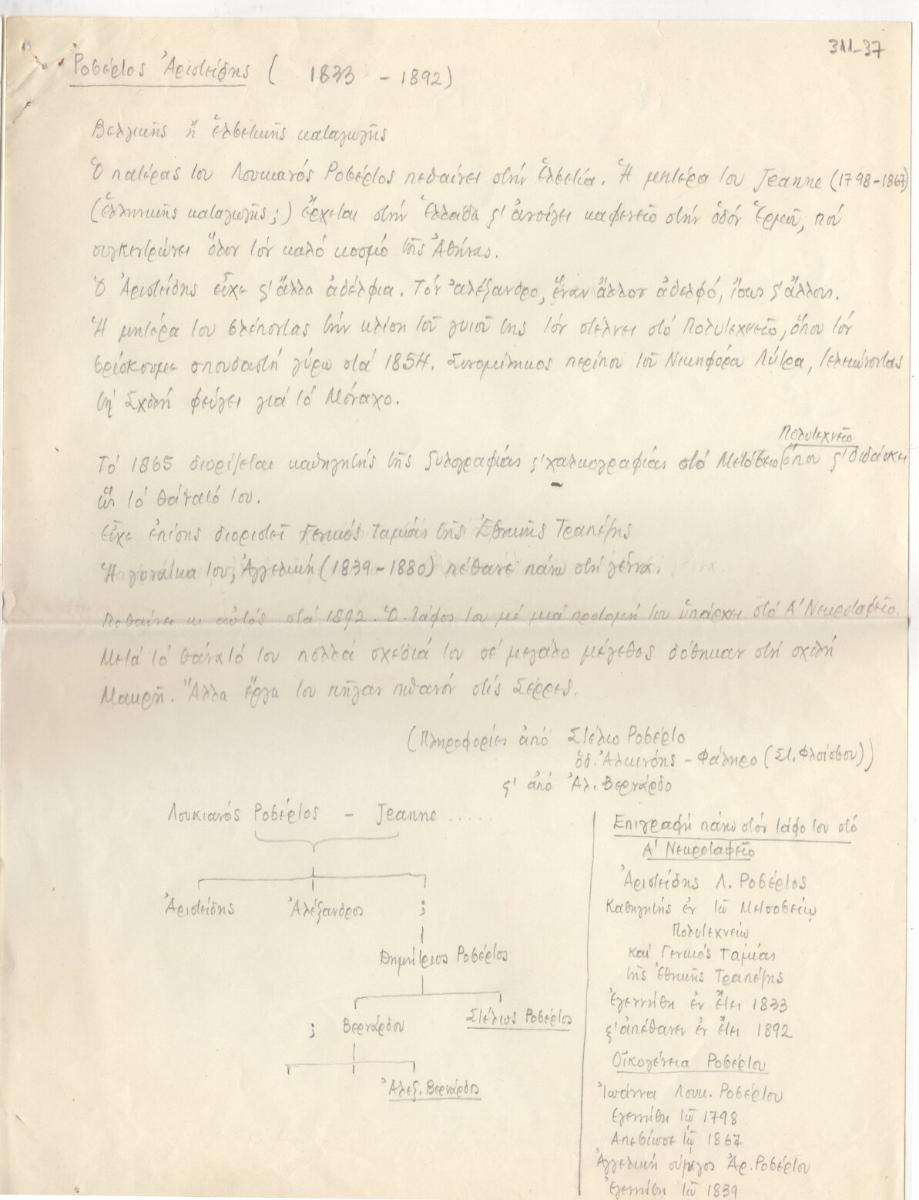 311-37
Ροβέρτος Ἀριστείδης ( 1833 - 1892)
Βελγικῆς ἤ ἑλβετικῆς καταγωγῆς
Ὁ πατέρας του Λουκιανός Ροβέρτος πεθαίνει στήν Ἑλβετία. Ἡ μητέρα του Jeanne (1798-1867)
(ἑλληνικῆς καταγωγῆς;) ἔρχεται στήν Ἑλλάδα ϛ' ἀνοίγει καφενεῖο στήν ὁδόν Ἑρμοῦ, πού
συγκεντρώνει ὅλον τόν καλό κοσμό τῆς Ἀθήνας.
Ὁ Ἀριστείδης εἶχε ϛ' ἄλλα ἀδέλφια. Τόν Ἀλέξανδρο, ἕναν ἄλλον ἀδελφό, ἴσως ϛ' ἄλλους.
Ἡ μητέρα του βλέποντας τήν κλίση τοῦ γυιοῦ της τόν στέλνει στό Πολυτεχνεῖο, ὅπου τόν
βρίσκουμε σπουδαστή γύρω στά 1854. Συνομίληκος περίπου τοῦ Νικηφόρα Λύτρα, τελειώνοντας
τή Σχολή φεύγει γιά τό Μόναχο.
Πολυτεχνεῖο
Τό 1865 διορίζεται καθηγητής τῆς ξυλογραφίας ϛ' χαλκογραφίας στό Μετσόβειο ὅπου ϛ' διδάσκει
ὥς τό θάνατό του.
Εἶχε ἐπίσης διοριστεῖ Γενικός Ταμίας τῆς Ἐθνικῆς Τραπέζης
Ἡ γυναίκα του, Ἀγγελική (1839-1880) πέθανε πάνω στή γέννα.
Πεθαίνει κι αὐτός στά 1892. Ὁ τάφος του μέ μιά προτομή του ὑπάρχει στό Α' Νεκροταφεῖο.
Μετά τό θάνατό του πολλά σχέδιά του σέ μεγάλο μέγεθος δόθηκαν στή σχολή
Μακρῆ. Ἄλλα ἔργα του πῆγαν πιθανόν στίς Σέρρες.
(Πληροφορίες ἀπό Στέλιο Ροβέρτο
ὁδ. Ἀλκινόης - Φάληρο (Στ. Φλοίσβου))
ϛ' ἀπό Ἀλ. Βερνάρδο
Λουκιανός Ροβέρτος - Jeanne .....
Ἀριστείδης Ἀλέξανδρος ;
Δημήτριος Ροβέρτος
; Βερνάρδου Στέλιος Ροβέρτος
Ἀλεξ. Βερνάρδος
Επιγραφή πάνω στόν τάφο του στό
Α' Νεκροταφεῖο
Ἀριστείδης Λ. Ροβέρτος
Καθηγητής ἐν τῷ Μετσοβείῳ
Πολυτεχνείῳ
καί Γενικός Ταμίας
τῆς Ἐθνικῆς Τραπέζης
Ἐγεννήθη ἐν ἔτει 1833
ϛ' ἀπέθανεν ἐν ἔτει 1892
Οἰκογένεια Ροβέρτου
Ἰωάννα Λουκ. Ροβέρτου
Εγεννήθη τῷ 1798
Απεβίωσε τῷ 1867
Ἀγγελική σύζυγος Ἀρ. Ροβέρτου
Ἐγεννήθη τῷ 1839